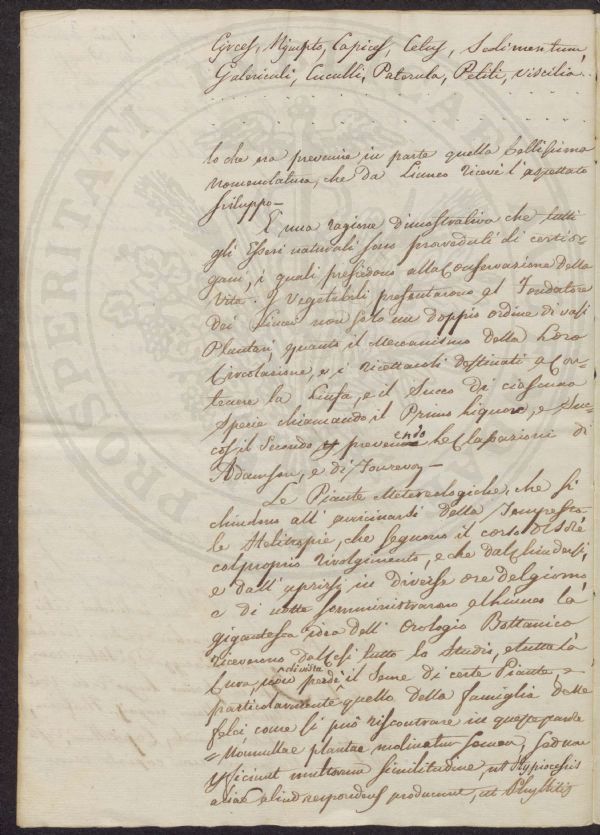 Cyrces, Nymphs, Capices, Celus, Sedimentum,
Galericuli, Cuculli, Paterula, Petili, Viscilia.
lo che era prevenire in parte quella bellissima
nomenclatura, che da Linneo riceve l'aspettato
sviluppo—
E una ragione dimostrativa che tutti
gli Esseri naturali sono proveduti di certi or-
gani, i quali presiedono alla Conservazione della
Vita. I Vegetabili presentarono al Fondatore
dei Lincei non solo un doppio ordine di vasi
Plantari, quanto il Meccanismo della Loro
Circolazione, e i ricettacoli destinati a Con-
tenere la Linfa, e il Succo di ciascuna
Specie chiamando il Primo Liquore, e Suc-
cos il Secondo prevenendo le Classazioni di
Adamson, e di Tourevon—
Le Piante Metereologiche, che si
chiudono all'avvicinarsi della Tempesta
le Helitropie, che seguono il corso del Sole
col proprio rivolgimento, e che dal chiudersi,
e dall'aprirsi in diverse ore del giorno
e di notte somministrarono a Linneo la
gigantesca idea dell'Orologio Bottanico
riceverono da Cesi tutto lo Studio, e tutta la
Cura, non perdè di vista il Seme di certe Piante, e
particolarmente quello della famiglia delle
felci come si può riscontrare in queste parole
= Nonnullae plantae moliuntur semen, sed non
ysiciunt multorum similitudine, ut
aliae aliud respondens producunt, ut Phyllitis